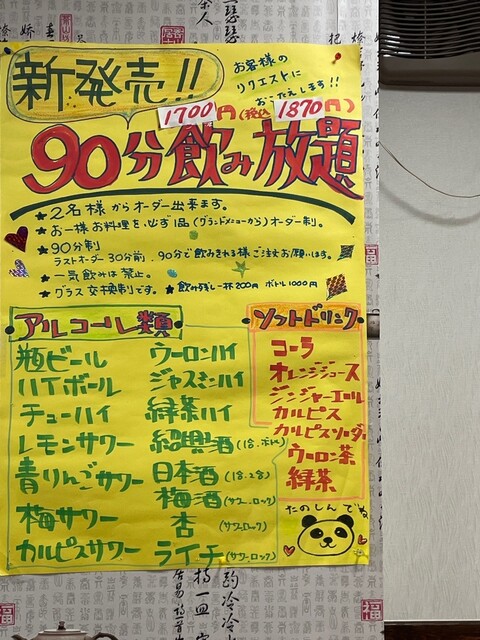 新発売!!
お客様の
リクエストに
おこたえします!!
1700円(税込1870円)
90分飲み放題
★2名様からオーダー出来ます。
★お一様お料理を必ず1品(グランドメニューから)オーダー制。
★90分制
ラストオーダー30分前、90分で飲みきれる様ご注文お願います。
★一気飲みは禁止。
★グラス交換制です。★飲み残し一杯200円 ボトル1000円
アルコール類
瓶ビール
ハイボール
チューハイ
レモンサワー
青りんごサワー
梅サワー
カルピスサワー
ウーロンハイ
ジャスミンハイ
緑茶ハイ
紹興酒(18.ボトル)
日本酒(18.28)
梅酒(サワー.ロック)
杏(サワー.ロック)
ライチ(サワー.ロック)
ソフトドリンク
コーラ
オレンジジュース
ジンジャーエール
カルピス
カルピスソーダ
ウーロン茶
緑茶
たのしんでね
福
福
福